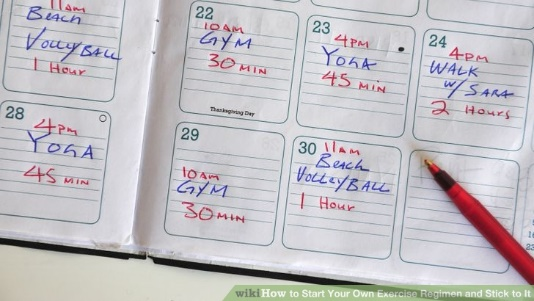 11am
Beach
VolleyBALL
1 Hour
28
4pm
YOGA
45 min
22
10am
GYM
30 min
Thanksgiving Day
23
4pm
YOGA
45 min
24
4pm
WALK
w/ SARA
2 Hours
29
10am
GYM
30 min
30
11am
Beach
VolleyBALL
1 Hour
wiki How to Start Your Own Exercise Regimen and Stick to It